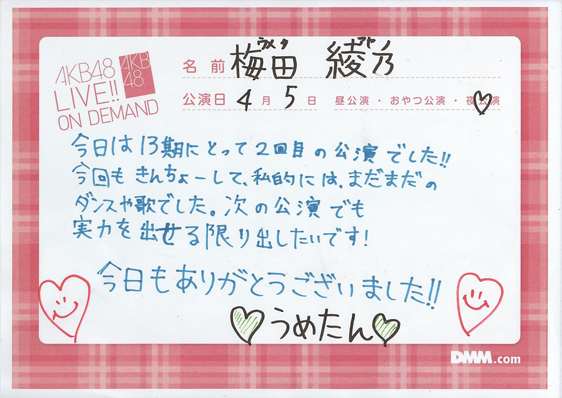 AKB48
LIVE!!
ON DEMAND
AKB
48
名前 梅田 綾乃
ウメタ アヤノ
公演日 4月5日 昼公演・おやつ公演・夜公演
今日は13期にとって2回目の公演でした!!
今回もきんちょーして、私的には、まだまだの
ダンスや歌でした。次の公演でも
実力を出せる限り出したいです!
今日もありがとうございました!!
うめたん
DMM.com